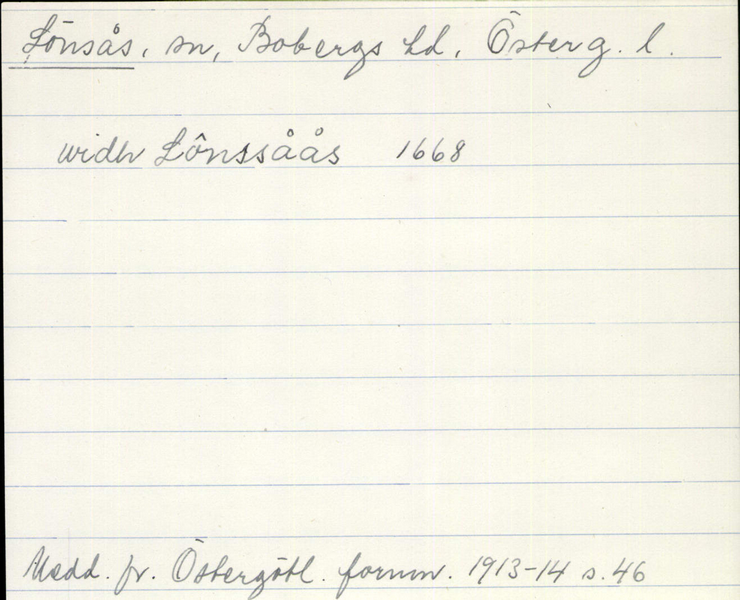 Lönsås, sn, Bobergs hd, Österg. l.
widh Lônssåås 1668
Medd. fr. Östergötl. fornm. 1913-14 s. 46